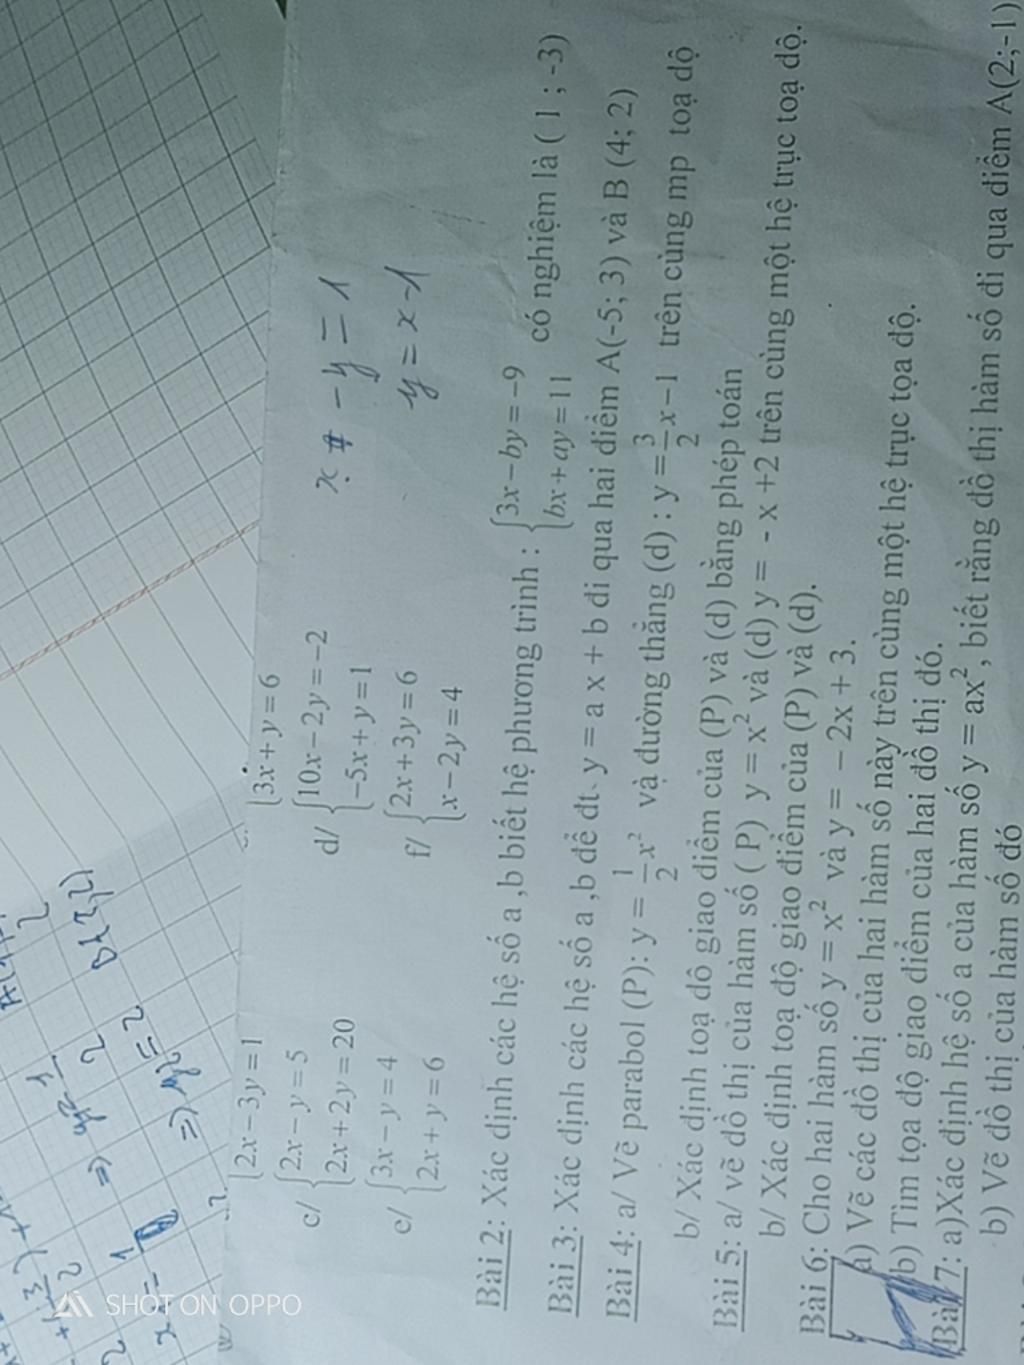 2x-3y=1
3x+y=6
c/ {2x-y=5
2x+2y=20
d/ {10x-2y=-2
-5x+y=1
e/ {3x-y=4
2x+y=6
f/ {2x+3y=6
x-2y=4
x - y = 1
y = x - 1
Bài 2: Xác định các hệ số a ,b biết hệ phương trình : {3x-by=-9
bx+ay=11 có nghiệm là ( 1 ; -3)
Bài 3: Xác định các hệ số a ,b để đt y = a x + b đi qua hai điểm A(-5; 3) và B (4; 2)
Bài 4: a/ Vẽ parabol (P): y = 1/2 x² và đường thẳng (d) : y = 3/2 x - 1 trên cùng mp toạ độ
b/ Xác định toạ đô giao điểm của (P) và (d) bằng phép toán
Bài 5: a/ vẽ đồ thị của hàm số ( P) y = x² và (d) y = - x +2 trên cùng một hệ trục toạ độ.
b/ Xác định toạ độ giao điểm của (P) và (d).
Bài 6: Cho hai hàm số y = x² và y = – 2x + 3.
a) Vẽ các đồ thị của hai hàm số này trên cùng một hệ trục tọa độ.
b) Tìm tọa độ giao điểm của hai đồ thị đó.
Bài 7: a)Xác định hệ số a của hàm số y = ax², biết rằng đồ thị hàm số đi qua điểm A(2;-1)
b) Vẽ đồ thị của hàm số đó
SHOT ON OPPO